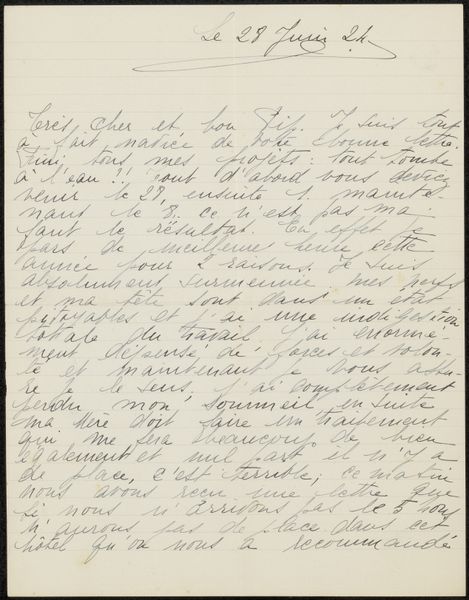 Le 28 Juin 24
Très cher et bon Pif. Je suis tout
à fait navrée de votre bonne lettre.
Fini, tous mes projets: tout tombe
à l'eau!! tout d'abord vous deviez
venir le 28, ensuite 1. mainte-
nant le 8. ce n'est pas ma
faut le résultat. En effet je
pars de meilleure heure cette
année pour 2 raisons. Je suis
absolument surmenée mes nerfs
et ma tête sont dans un état
pitoyables et j'ai une indigestion
totale du travail j'ai énormé-
ment dépensé de forces et volon-
té et maintenant je vous assu-
re je le sens. j'ai complètement
perdu mon sommeil ensuite
ma Mère doit faire un traitement
qui me sera beaucoup de bien
également et nul part il n'y a
de place, c'est terrible; ce matin
nous avons reçu une lettre que
si nous n'arrivons pas le 5 nous
n'aurons pas de place dans cet
hôtel qu'on nous a recommandé